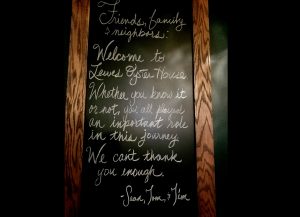 Friends, family
& neighbors:
Welcome to
Lewes Oyster House
Whether you know it
or not, you all played
an important role
in this journey.
We can't thank
you enough.
-Sean, Tom, & Jim